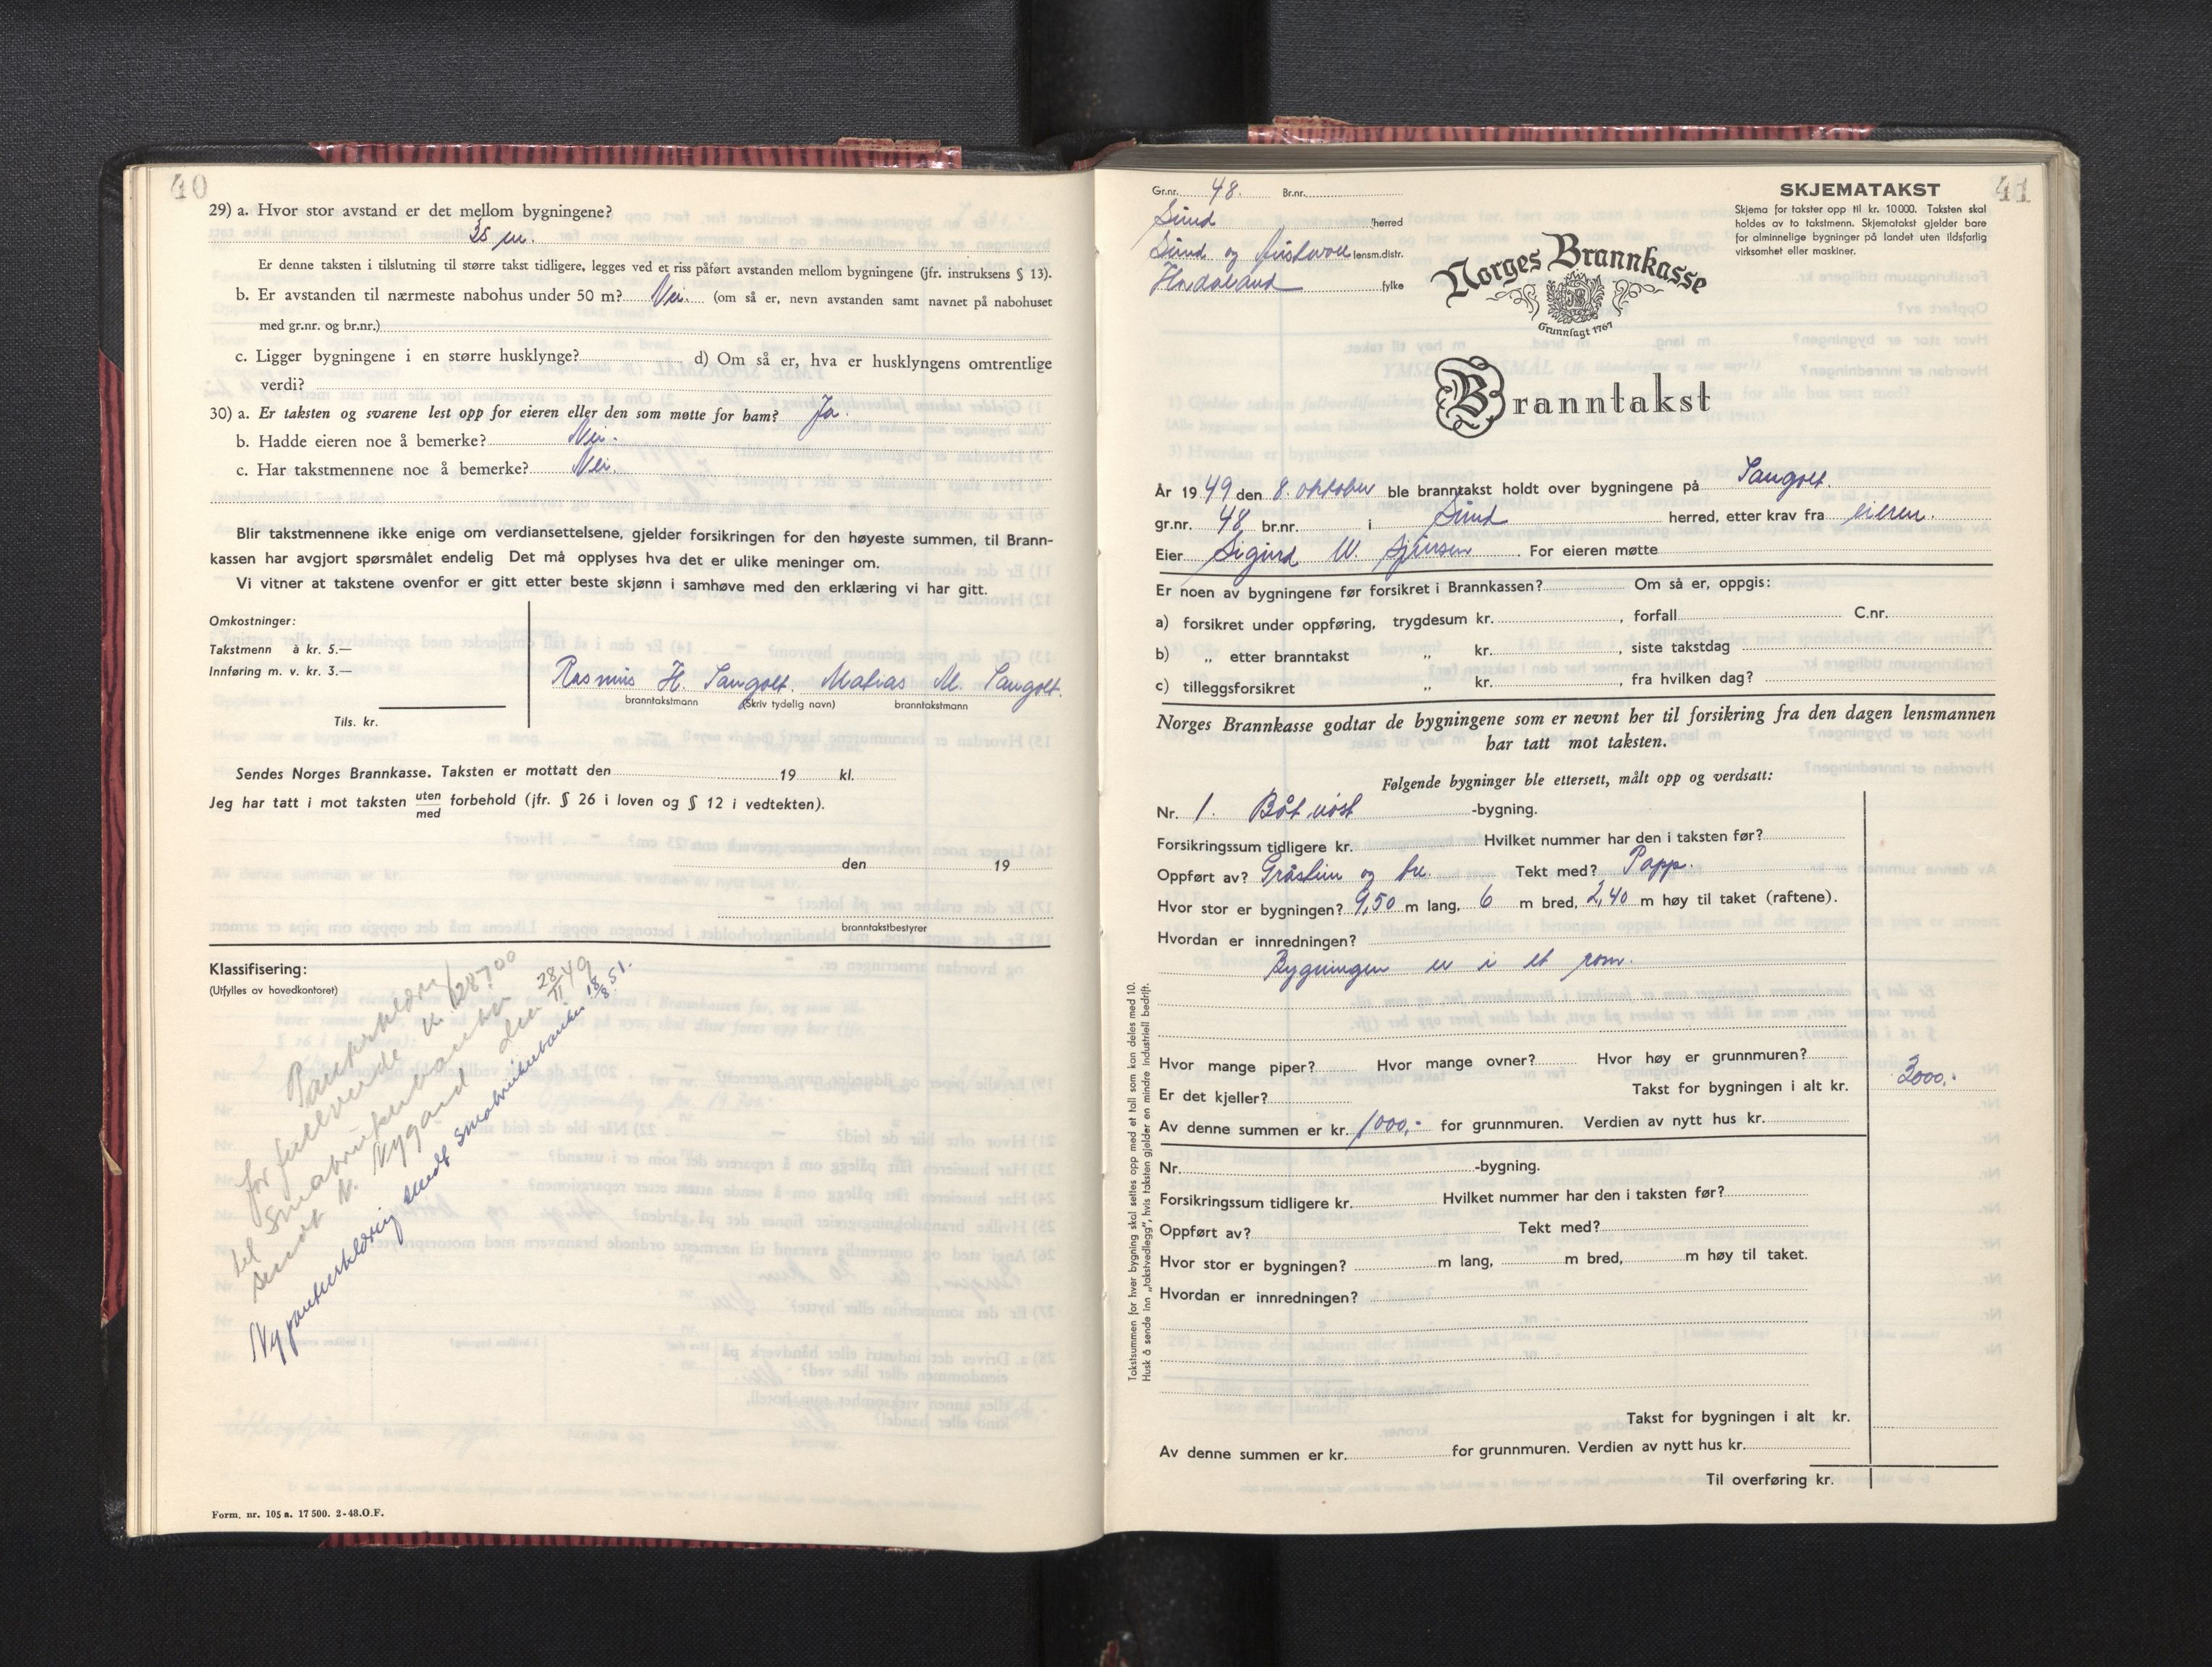 40
29) a. Hvor stor avstand er det mellom bygningene?
25 m.
Er denne taksten i tilslutning til større takst tidligere, legges ved et riss påført avstanden mellom bygningene (jfr. instruksens § 13).
b. Er avstanden til nærmeste nabohus under 50 m? Nei. (om så er, nevn avstanden samt navnet på nabohuset
med gr.nr. og br.nr.)
c. Ligger bygningene i en større husklynge? d) Om så er, hva er husklyngens omtrentlige
verdi?
30) a. Er taksten og svarene lest opp for eieren eller den som møtte for ham? Ja.
b. Hadde eieren noe å bemerke? Nei.
c. Har takstmennene noe å bemerke? Nei.
Blir takstmennene ikke enige om verdiansettelsene, gjelder forsikringen for den høyeste summen, til Brann-
kassen har avgjort spørsmålet endelig Det må opplyses hva det er ulike meninger om.
Vi vitner at takstene ovenfor er gitt etter beste skjønn i samhøve med den erklæring vi har gitt.
Omkostninger:
Takstmenn à kr. 5.—
Innføring m. v. kr. 3.—
Tils. kr.
Rasmus H. Tangolt. Matias M. Tangolt.
branntakstmann (Skriv tydelig navn) branntakstmann
Sendes Norges Brannkasse. Taksten er mottatt den 19 kl.
Jeg har tatt i mot taksten uten/med forbehold (jfr. § 26 i loven og § 12 i vedtekten).
den 19
branntakstbestyrer
Klassifisering:
(Utfylles av hovedkontoret)
Panterklæring
for fullverdi k. 128700
til Småbrukerbanken 28/11 49
sendt k. Nygard
Ny panterklæring sendt Småbrukerbanken 18/8 51.
Form. nr. 105 a. 17 500. 2-48. O.F.
41
Gr.nr. 48. Br.nr.
Sund herred
Sund og Austevoll lensm.distr.
Hordaland fylke
SKJEMATAKST
Skjema for takster opp til kr. 10 000. Taksten skal
holdes av to takstmenn. Skjematakst gjelder bare
for alminnelige bygninger på landet uten ildsfarlig
virksomhet eller maskiner.
Norges Brannkasse
Grunnlagt 1767
Branntakst
År 1949 den 8. oktober ble branntakst holdt over bygningene på Tangolt.
gr.nr. 48 br.nr. i Sund herred, etter krav fra eieren.
Eier Sigurd W. Sjursen. For eieren møtte
Er noen av bygningene før forsikret i Brannkassen? Om så er, oppgis:
a) forsikret under oppføring, trygdesum kr. , forfall C.nr.
b) „ etter branntakst „ kr. , siste takstdag
c) tilleggsforsikret „ kr. , fra hvilken dag?
Norges Brannkasse godtar de bygningene som er nevnt her til forsikring fra den dagen lensmannen
har tatt mot taksten.
Følgende bygninger ble ettersett, målt opp og verdsatt:
Nr. 1. Båt nøst -bygning.
Forsikringssum tidligere kr. Hvilket nummer har den i taksten før?
Oppført av? Gråstein og tre. Tekt med? Papp.
Hvor stor er bygningen? 9,50 m lang, 6 m bred, 2,40 m høy til taket (raftene).
Hvordan er innredningen?
Bygningen er i et rom.
Hvor mange piper? Hvor mange ovner? Hvor høy er grunnmuren?
Er det kjeller? Takst for bygningen i alt kr. 3000,-
Av denne summen er kr. 1000,- for grunnmuren. Verdien av nytt hus kr.
Nr. -bygning.
Forsikringssum tidligere kr. Hvilket nummer har den i taksten før?
Oppført av? Tekt med?
Hvor stor er bygningen? m lang, m bred, m høy til taket.
Hvordan er innredningen?
Takst for bygningen i alt kr.
Av denne summen er kr. for grunnmuren. Verdien av nytt hus kr.
Til overføring kr.
Takstsummen for hver bygning skal settes opp med et tall som kan deles med 10.
Husk å sende inn „takstvedlegg", hvis taksten gjelder en mindre industriell bedrift.